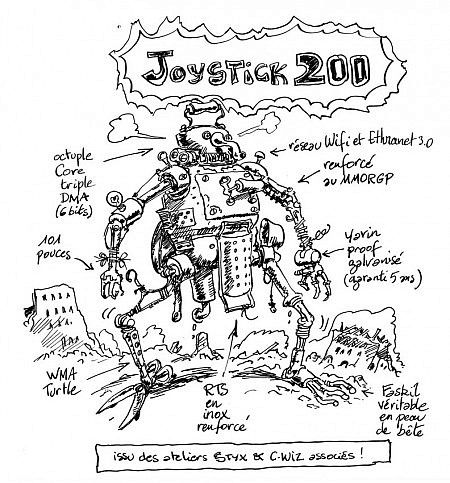 JOYSTICK 200
octuple
Core
triple
DMA
(6 bits)
réseau Wifi et Ethranet 3.0
renforcé
au MMORGP
101
pouces
Yorin
proof
galvanisé
(garanti 5 ans)
WMA
Turtle
RTS
en
inox
renforcé
Faskil
véritable
en peau
de bête
issu des ateliers STYX & C-WIZ associés !